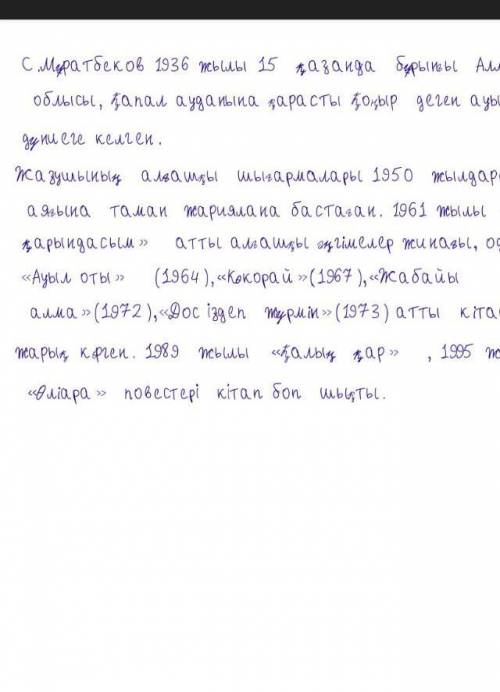 С.Мұратбеков 1936 жылы 15 қазанда бұрынғы
облысы, Қапал ауданына қарасты Қоңыр деген
дүниеге келген.
Жазушының алғашқы шығармалары 1950
аяғына таман жариялана бастаған. 1961 жылы
қарындасым» атты алғашқы әңгімелер жинағы,
«Ауыл оты» (1964),«Көкорай»(1967),«Жабайы
алма»(1972),«Дос іздеп жүрмін»(1973) атты
жарық көрген. 1989 жылы «Қалың қар» , 1995
«Өліара» повестері кітап боп шықты.